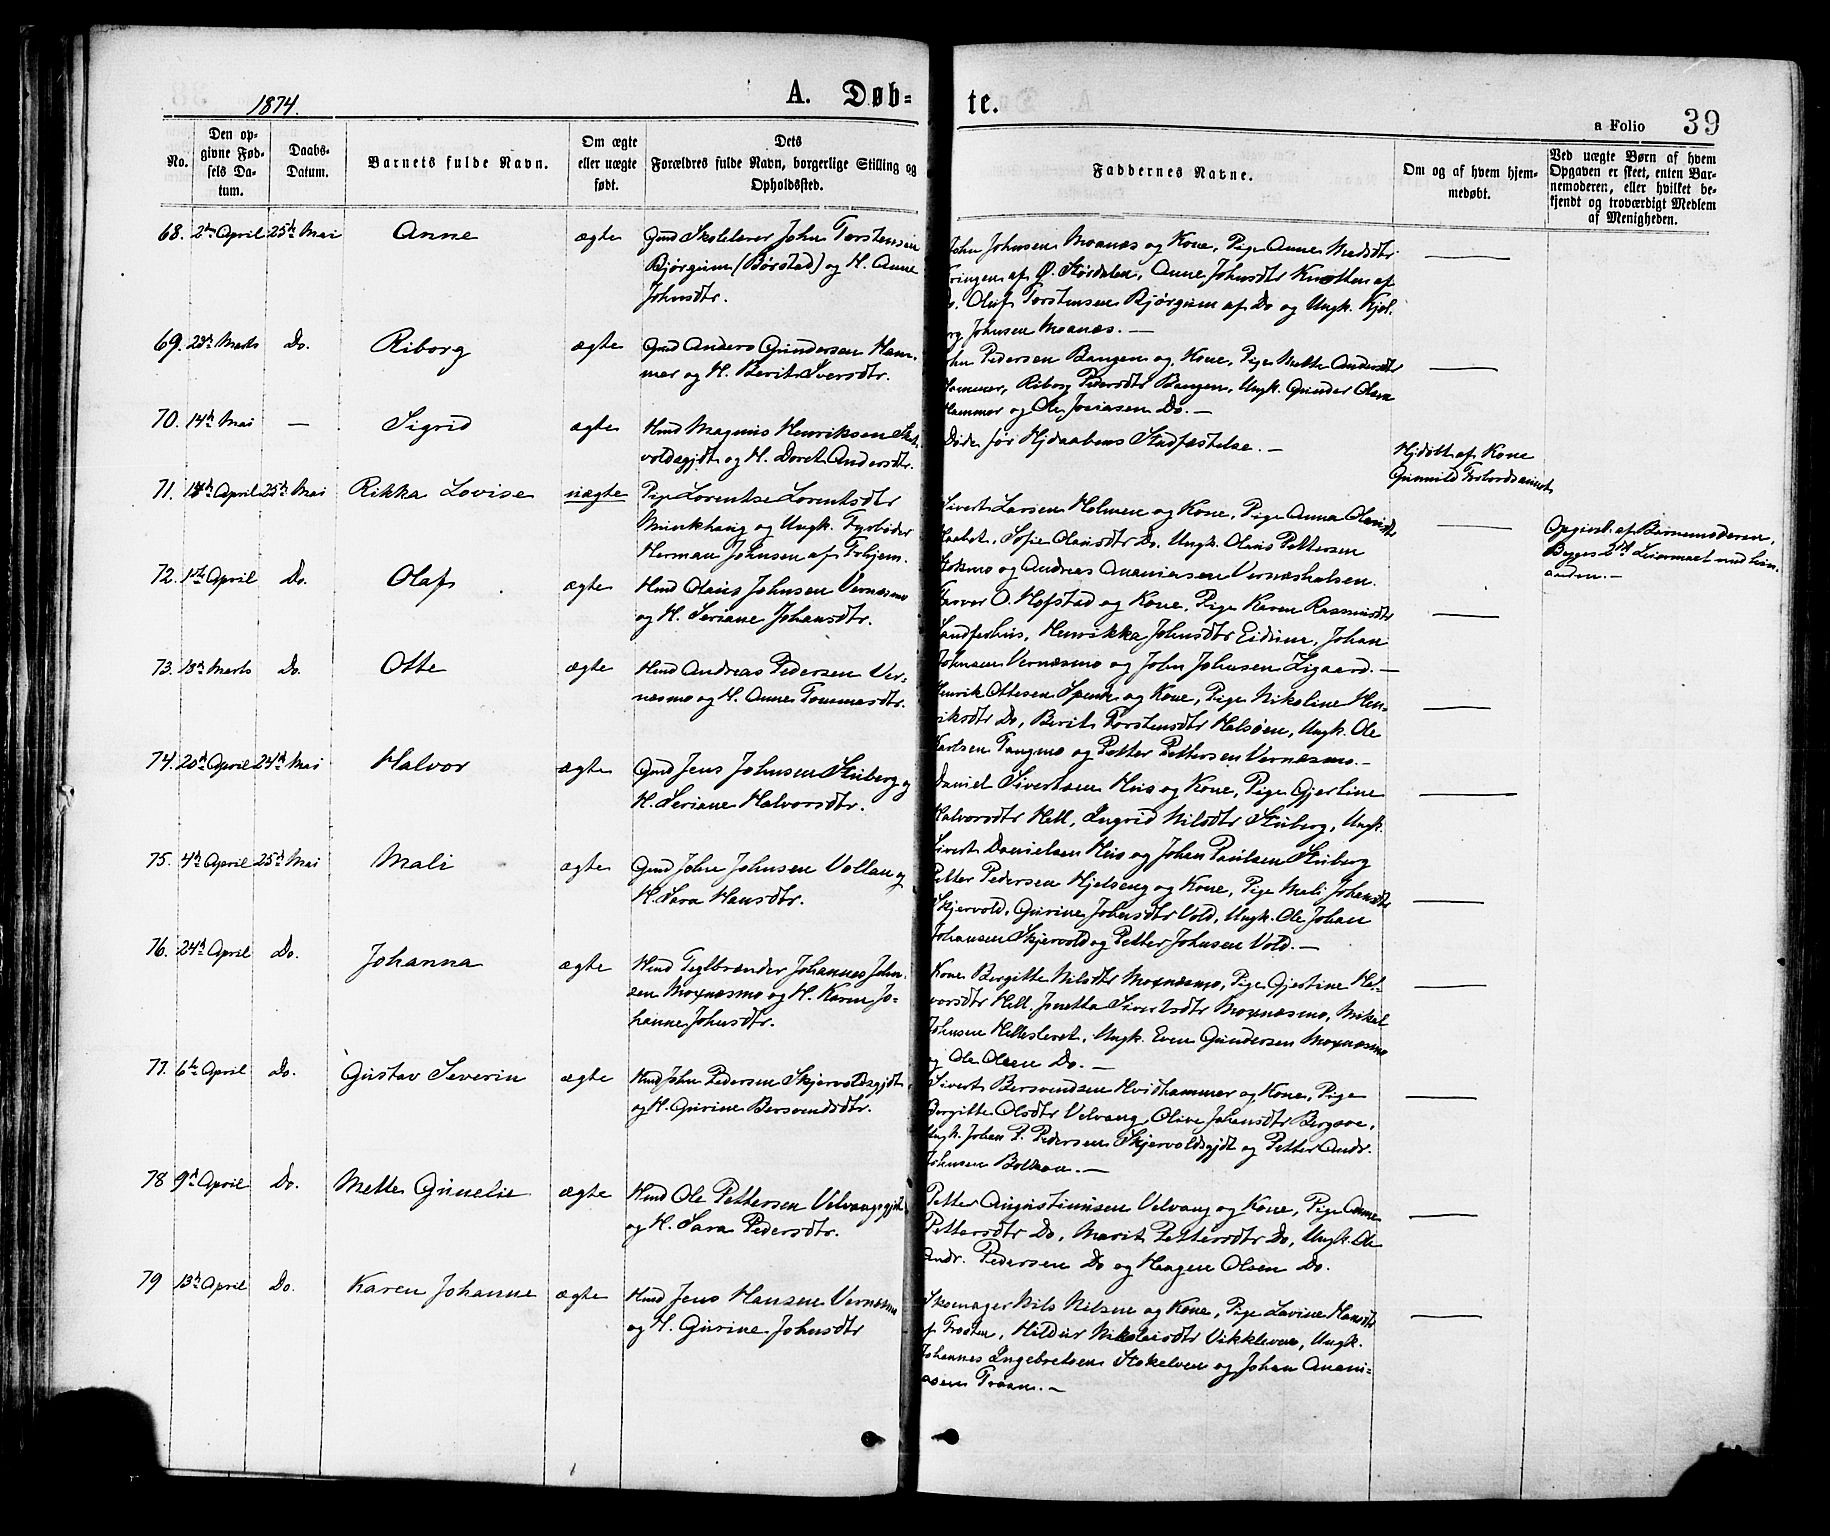 1874.
A. Døb-
te.
a Folio 39
No.
Den op-
givne Fød-
sels Da-
tum.
Daabs-
Datum.
Barnets fulde Navn.
Om ægte
eller uægte
født.
Dets
Forældres fulde Navn, borgerlige Stilling og
Opholdssted.
Faddernes Navne.
Om og af hvem hjem-
medøbt.
Ved uægte Børn af hvem
Opgaven er skeet, enten Bar-
nemoderen, eller hvilket be-
kjendt og troværdigt Medlem
af Menigheden.
68. 2den April 25de Mai Anne ægte Gmd Skolelærer John Torstensen
Bjørgum (Børstad) og H. Anne
Johnsdtr.
John Johnsen Moanæs og Kone, Pige Anne Madsdtr
Kringen af Ø. Størdalen, Anne Johnsdtr Knotten af
Do. Oluf Torstensen Bjørgum af Do og Ungk.
Johnsen Moanæs. —
69. Marts Do. Riborg ægte Gmd Anders Gundersen Ham-
mer og H. Berit Iversdtr.
John Pedersen Bangen og Kone, Pige Mette Andersdtr
Hammer, Riborg Pedersdtr Bangen, Ungk. Gunder Olsen
Hammer og Ole Josiasen Do. —
70. 14de Mai — Sigrid ægte Hmd Magnus Henriksen
voldsgjdt og H. Doret Andersdtr.
Døde før Hjdaabens Stadfæstelse. —
Hjdøbt af Kone
Gunnild
71. April 25de Mai Rikka Lovise uægte Pige Lorentse Lorentsdtr
Munkhaug og Ungk. Fyrbøder
Herman Johnsen af Trhjem.
Sivert Larsen Holmen og Kone, Pige Anna Olausdtr
Haabet, Sofie Olausdtr Do. Ungk. Olaus Pettersen
Stokmo og Andreas Ananiasen Vernæshalsen.
Opgivet af Barnemoderen,
Begges 2det Leiermaal med hin-
anden. —
72. 1ste April Do. Olaf ægte Hmd Olaus Johnsen Vernæsmo
og H. Seriane Johansdtr.
Harver O. Hofstad og Kone, Pige Karen Rasmusdtr
Sandferhus, Henrikka Johnsdtr Eidum, Johan
Johnsen Vernæsmo og John Johnsen Ligaard. —
73. 18de Marts Do. Otte ægte Hmd Andreas Pedersen Ver-
næsmo og H. Anne Tommasdtr.
Henrik Ottesen Spend og Kone, Pige Nikoline Hen-
riksdtr Do, Berit Torstensdtr Halsøen, Ungk. Ole
Karlsen Tangmo og Petter Pettersen Vernæsmo. —
74. 20de April 24de Mai Halvor ægte Gmd Jens Johnsen Stuberg og
H. Seriane Halvorsdtr.
Daniel Sivertsen Hus og Kone, Pige Gjertine
Halvorsdtr Hell, Ingrid Nilsdtr Stuberg, Ungk.
Sivert Danielsen Hus og Johan Paulsen Stuberg
75. 4de April 25de Mai Mali ægte Gmd John Johnsen Vollan og
H. Sara Hansdtr.
Petter Pedersen Hjelseng og Kone, Pige Mali Johansdtr
Skjervold, Gurine Johnsdtr Vold, Ungk. Ole Johan
Johansen Skjervold og Petter Johnsen Vold. —
76. 24de April Do. Johanna ægte Hmd Teglbrænder Johannes John-
sen Moxnæsmo og H. Karen Jo-
hanne Johnsdtr.
Kone Bergitte Nilsdtr Moxnæsmo, Pige Gjertine Hal-
vorsdtr Hell, Jonetta Sivertsdtr Moxnæsmo, Mikal
Johnsen Hellesleret, Ungk. Even Gundersen Moxnæsmo
og Ole Olsen Do. —
77. 6te April Do. Gustav Severin ægte Hmd John Pedersen Skjervoldsgjdt
og H. Gurine Bersvendsdtr.
Sivert Bersvendsen Hvidhammer og Kone, Pige
Bergitte Olsdtr Velvang, Olive Johansdtr Bergsve,
Ungk. Johan P. Pedersen Skjervoldsgjdt og Petter Andr.
Johnsen —
78 9de April Do. Mette Gunelie ægte Hmd Ole Pettersen Velvangsgjdt
og H. Sara Pedersdtr.
Petter Augustinusen Velvang og Kone, Pige Anne
Pettersdtr Do, Marit Pettersdtr Do, Ungk. Ole
Andr. Pedersen Do og Haagen Olsen Do.
79 13de April Do. Karen Johanne ægte Hmd Jens Hansen Vernæsmo
og H. Gurine Johnsdtr
Skomager Nils Nilsen og Kone, Pige Lavine Hansdtr
af Frosten, Hildur Nikolaisdtr Vikkleven, Ungk.
Johannes Ingebretsen Stokelven og Johan Anani-
asen Traan. —